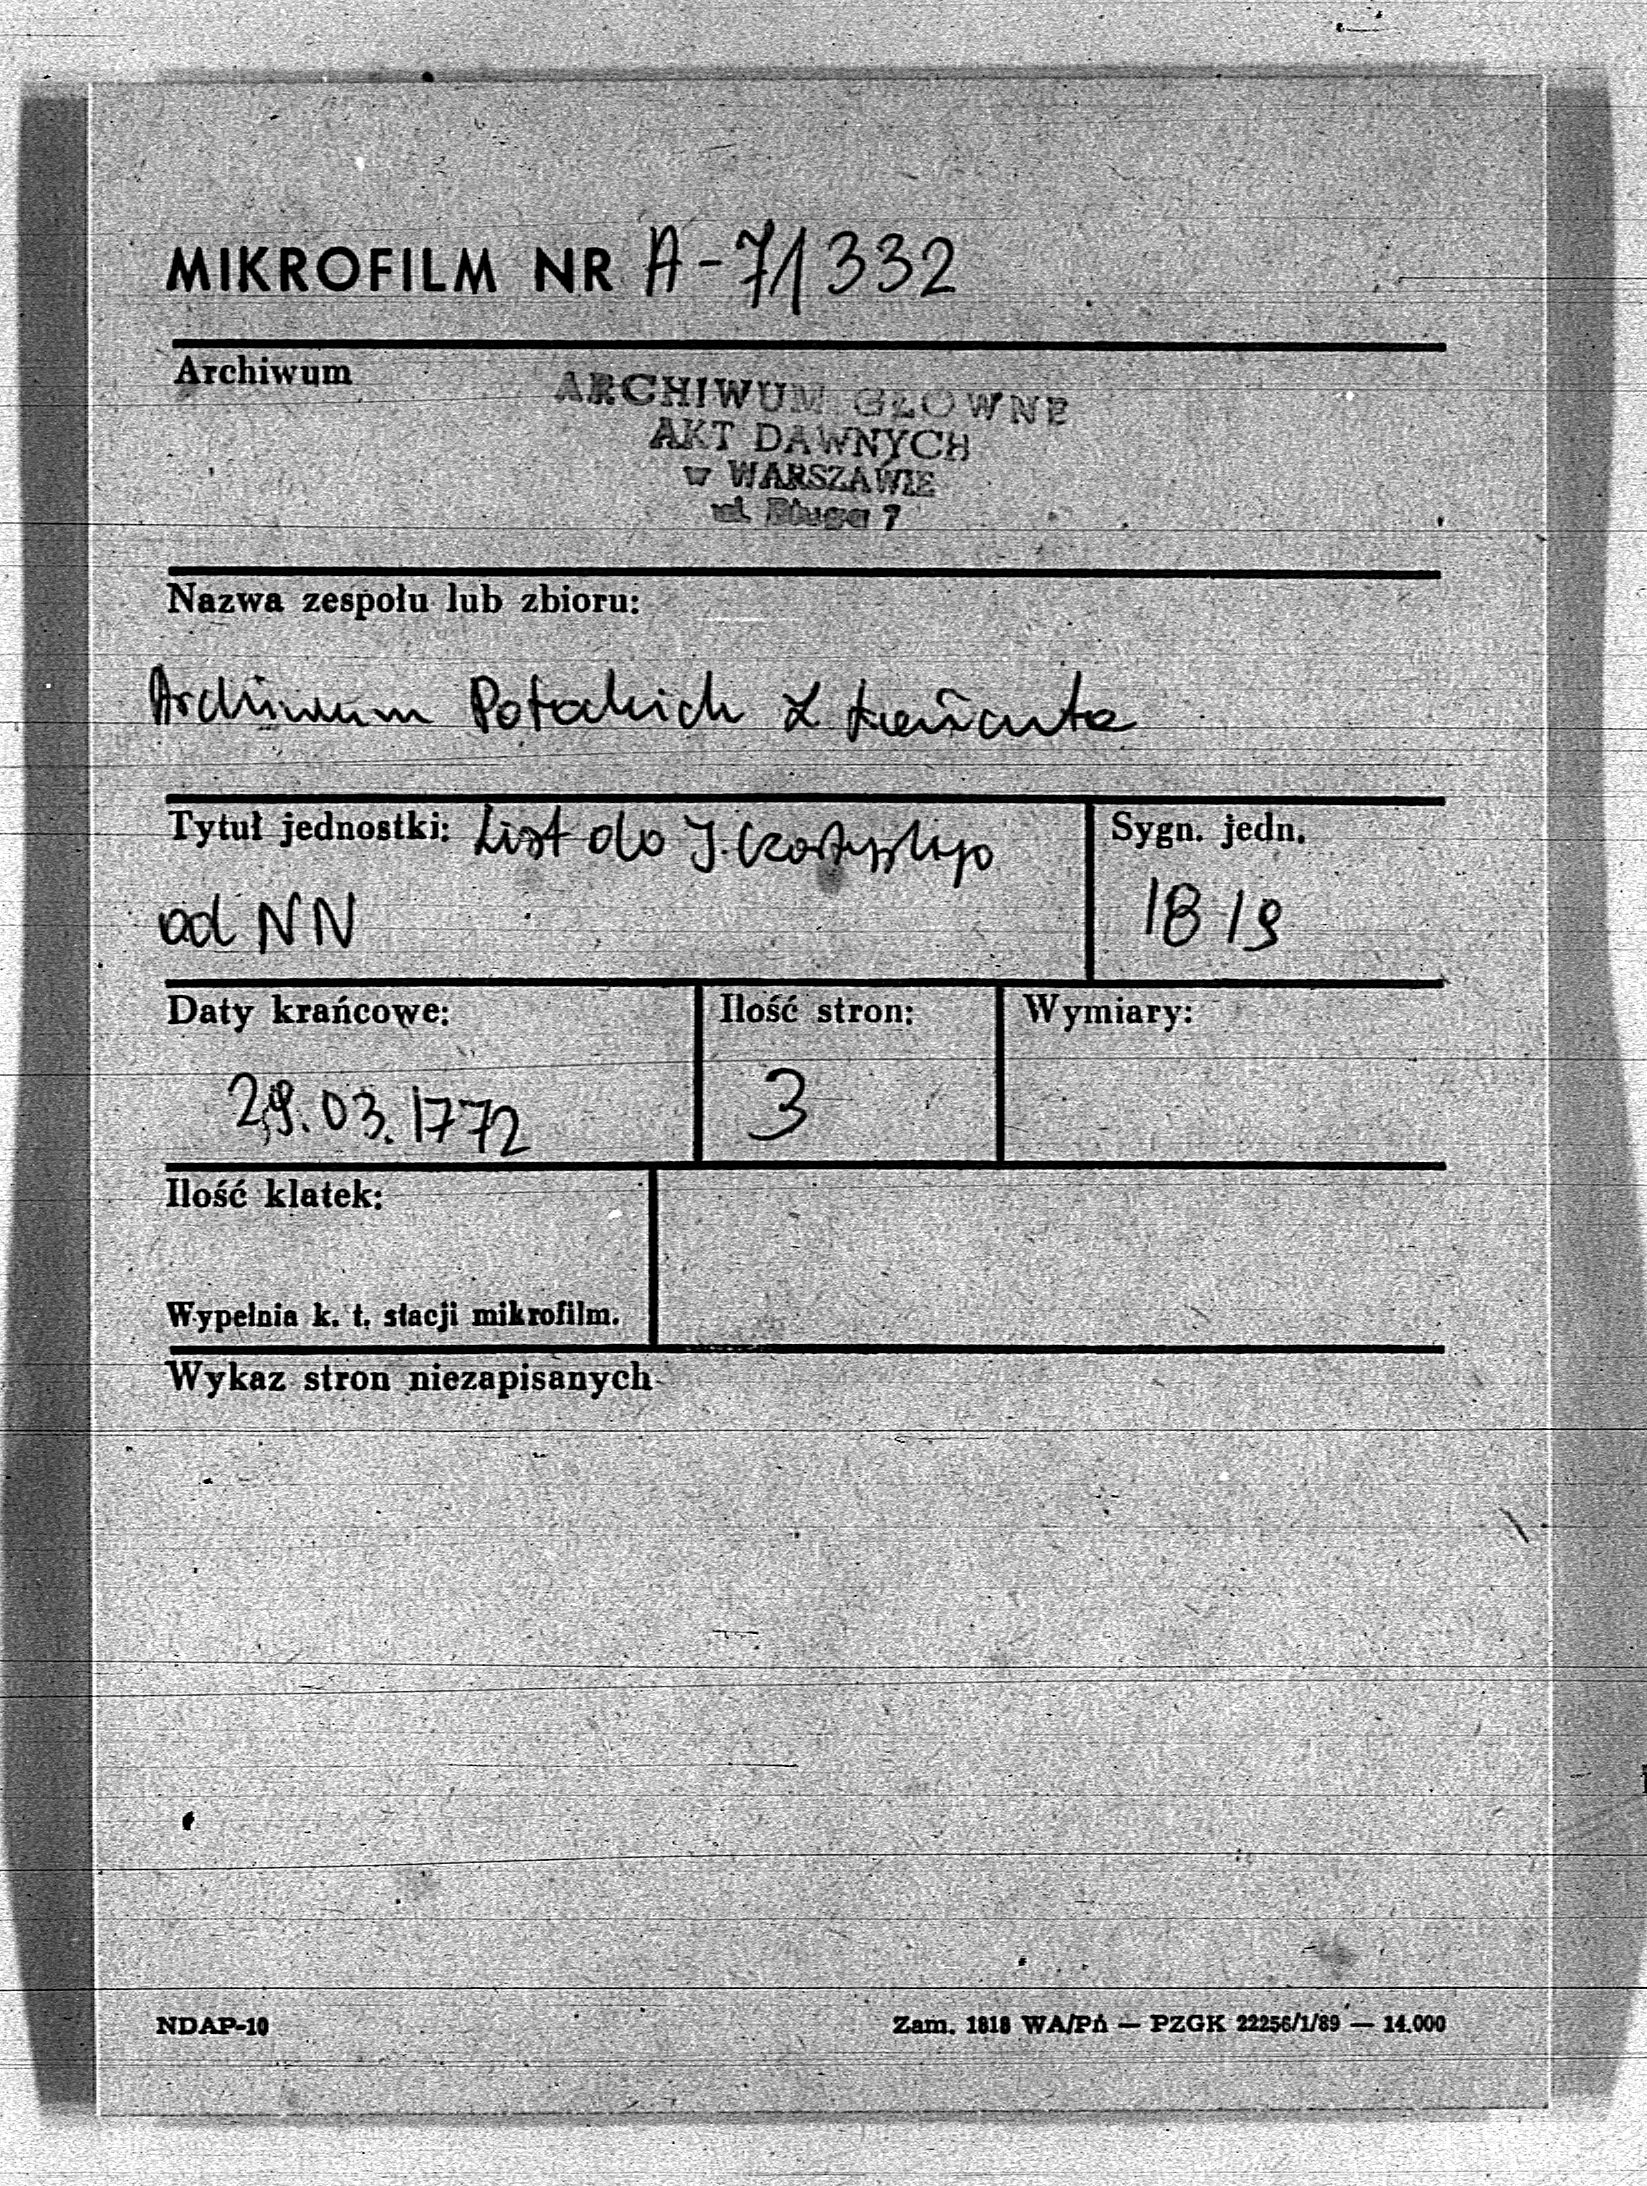 MIKROFILM NR A-71332
Archiwum
ARCHIWUM GŁOWNE
AKT DAWNYCH
w WARSZAWIE
ul Długa 7
Nazwa zespołu lub zbioru:
Archiwum Potockich z Łańcuta
Tytuł jednostki: List do J. Czartoryskiego
od NN
Sygn. jedn.
1819
Daty krańcowe:
29.03.1772
Ilość stron:
3
Wymiary:
Ilość klatek:
Wypełnia k. t. stacji mikrofilm.
Wykaz stron niezapisanych
NDAP-10
Zam. 1818 WA/PA — PZGK 22256/1/89 — 14.000